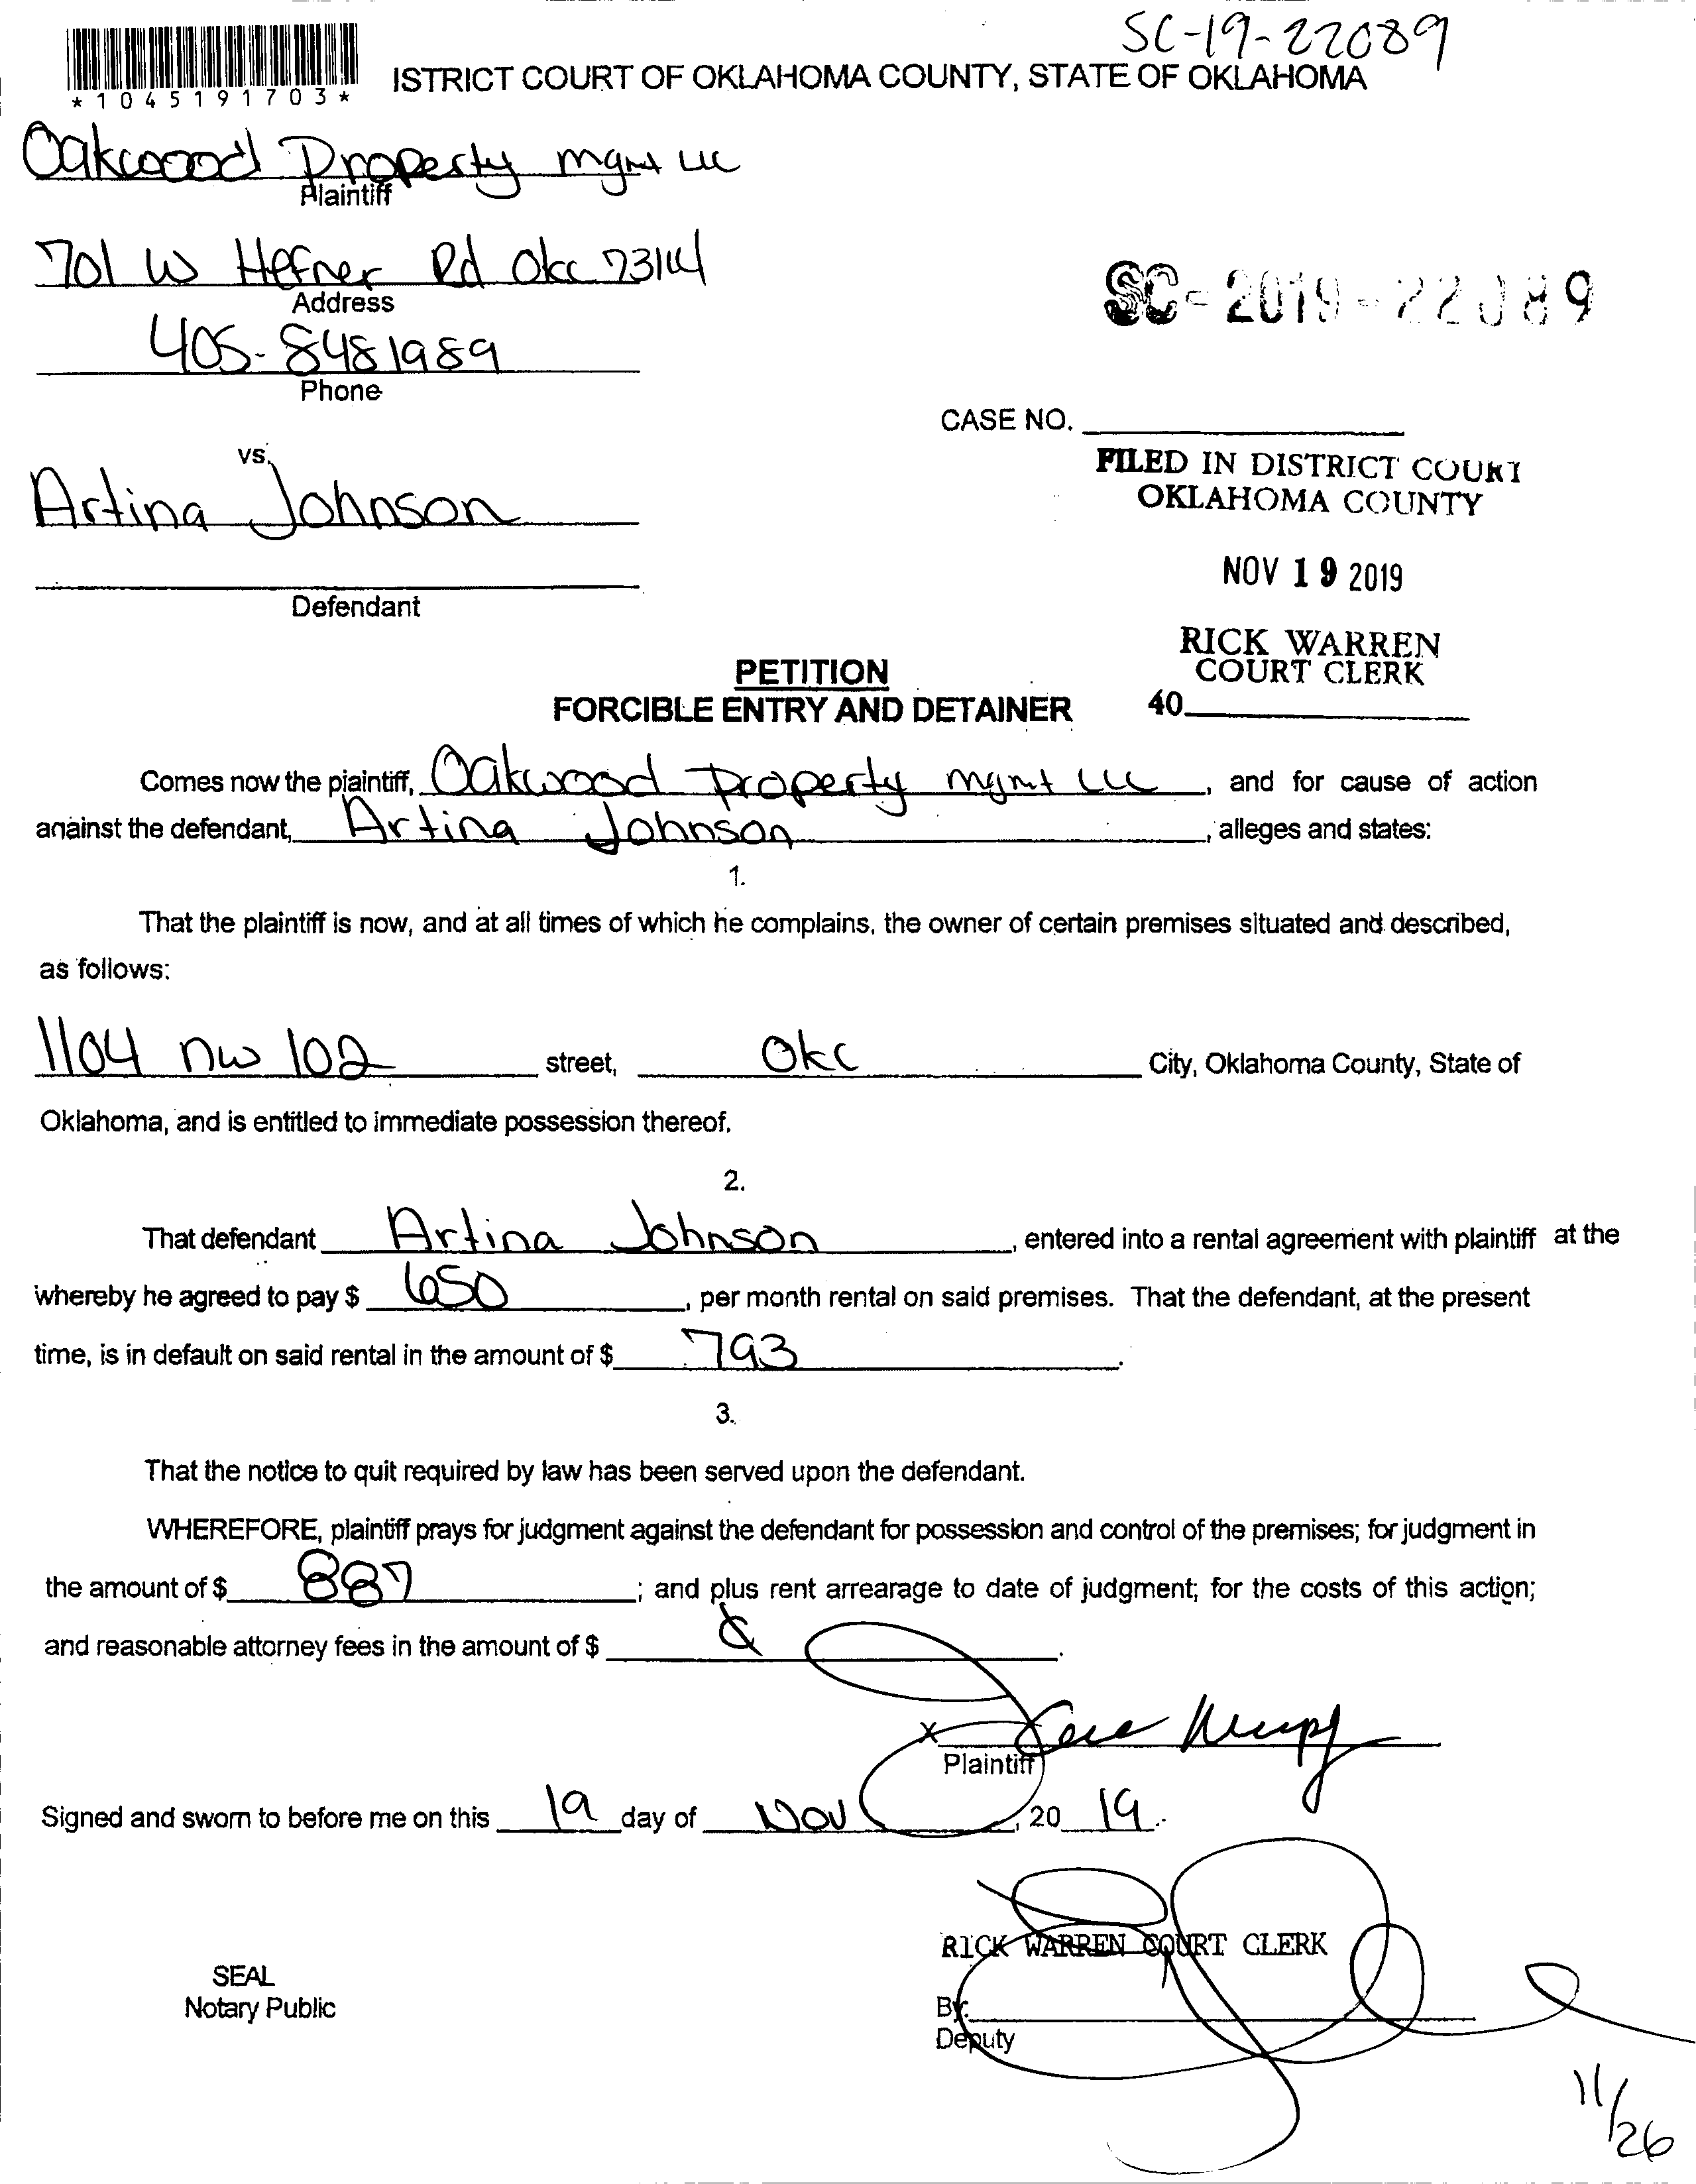 SC-19-22089
*1045191703*
ISTRICT COURT OF OKLAHOMA COUNTY, STATE OF OKLAHOMA
Oakwood Property mgmt LLC
Plaintiff
701 W Hefner Rd Okc 73114
Address
SC-2019-22089
405-8481989
Phone
CASE NO.
FILED IN DISTRICT COURT
OKLAHOMA COUNTY
vs.
Artina Johnson
NOV 19 2019
Defendant
RICK WARREN
COURT CLERK
40
PETITION
FORCIBLE ENTRY AND DETAINER
Comes now the plaintiff, Oakwood Property mgmt LLC, and for cause of action
against the defendant, Artina Johnson, alleges and states:
1.
That the plaintiff is now, and at all times of which he complains, the owner of certain premises situated and described,
as follows:
1104 nw 102 street, Okc City, Oklahoma County, State of
Oklahoma, and is entitled to immediate possession thereof.
2.
That defendant Artina Johnson, entered into a rental agreement with plaintiff at the
whereby he agreed to pay $ 650, per month rental on said premises. That the defendant, at the present
time, is in default on said rental in the amount of $ 793.
3.
That the notice to quit required by law has been served upon the defendant.
WHEREFORE, plaintiff prays for judgment against the defendant for possession and control of the premises; for judgment in
the amount of $ 887; and plus rent arrearage to date of judgment; for the costs of this action;
and reasonable attorney fees in the amount of $
X
Plaintiff
Signed and sworn to before me on this 19 day of Nov, 20 19.
RICK WARREN COURT CLERK
SEAL
Notary Public
By:
Deputy
11/26